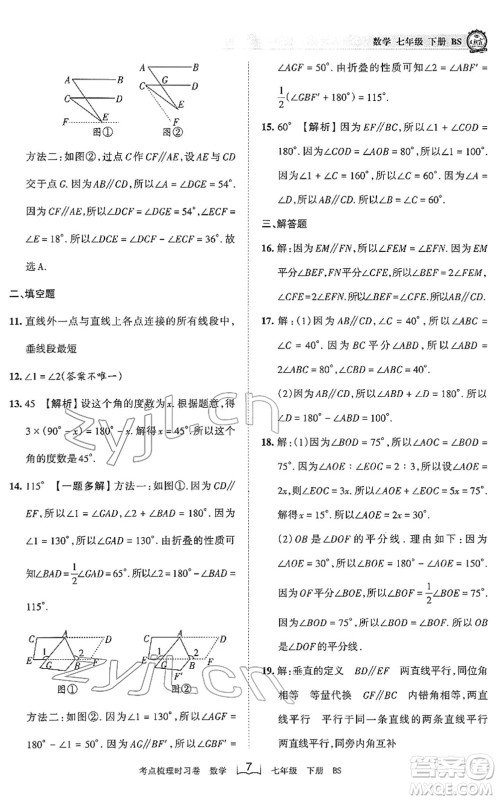 数学 七年级 下册 BS
A B
C G D
E
F
图①
A B
C G D
E
F
图②
方法二:如图②,过点C作CF∥AE,设AE与CD
交于点G.因为AB∥CD,所以∠A=∠DGE=54°.
因为CF∥AE,所以∠DCF=∠DGE=54°,∠FCE=
∠E=18°.所以∠DCE=∠DCF-∠FCE=36°.故
选A.
二、填空题
11. 直线外一点与直线上各点连接的所有线段中,
垂线段最短
12. ∠1=∠2(答案不唯一)
13. 45 【解析】设这个角的度数为x.根据题意,得
3×(90°-x)=180°-x.解得x=45°.所以这个
角的度数是45°.
14. 115° 【一题多解】方法一:如图①.因为CD∥
EF,所以∠1=∠GAD=50°.由折叠的性质可
知∠DAB=1/2∠GAD=65°.所以∠2=180°-∠DAB=
115°.
图①
图②
方法二:如图②.因为CD∥EF,所以∠1=
∠AGF=50°.由折叠的性质可知∠ABF'=∠2=
1/2(∠GBF'+180°)=115°.
15. 60° 【解析】因为EF∥MN,所以∠1+∠COE=
180°.因为∠COD=∠COE,所以∠1+∠COD=
180°.因为∠COD=∠AOB=80°,所以∠1=100°.
因为∠1+∠C=160°,所以∠C=60°.
三、解答题
16. 解:因为EM∥FN,所以∠FEM=∠EFN.因为EM
平分∠BEF,FN平分∠CFE,所以∠BEF=2∠FEM,
∠EFC=2∠EFN.所以∠FEB=∠EFC.所以AB∥CD.
17. 解:(1)因为AB∥CD,∠C=40°,所以∠ABC=
∠C=40°.因为CB平分∠ABD,所以∠ABD=
2∠ABC=80°.
(2)因为AB∥CD,所以∠ABD+∠D=180°.所以
∠D=180°-∠ABD=100°.
18. 解:(1)因为∠BOD=75°,所以∠AOC=∠BOD=
75°.因为∠AOE:∠EOC=2:3,所以设∠AOE=
2x,则∠EOC=3x.所以∠AOC=5x.所以5x=75°.
解得x=15°.所以∠AOE=2x=30°.
(2)OB是∠DOF的平分线.理由如下:因为
∠AOE=30°,所以∠BOE=180°-∠AOE=150°.
因为OF平分∠BOE,所以∠BOF=1/2∠BOE=
75°.因为∠BOD=75°,所以∠BOD=∠BOF.所以
∠DOF的平分线是OB.
19. 解:垂直的定义 BD∥EF 两直线平行,同位角
相等 等量代换 GF∥BC 内错角相等,两直
线平行 平行于同一条直线的两条直线平行
两直线平行,同旁内角互补
zyjl.cn
zyjl.cn
考点梳理时习卷 数学 7 七年级 下册 BS